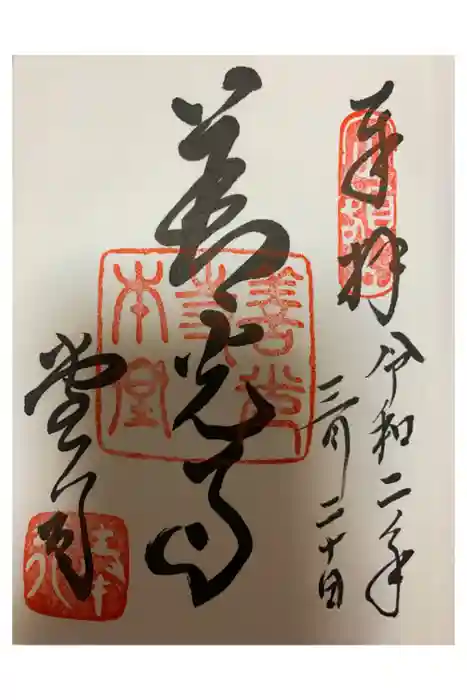 奉拝
令和二年
三月二十日
善光寺
善光寺本堂
堂司